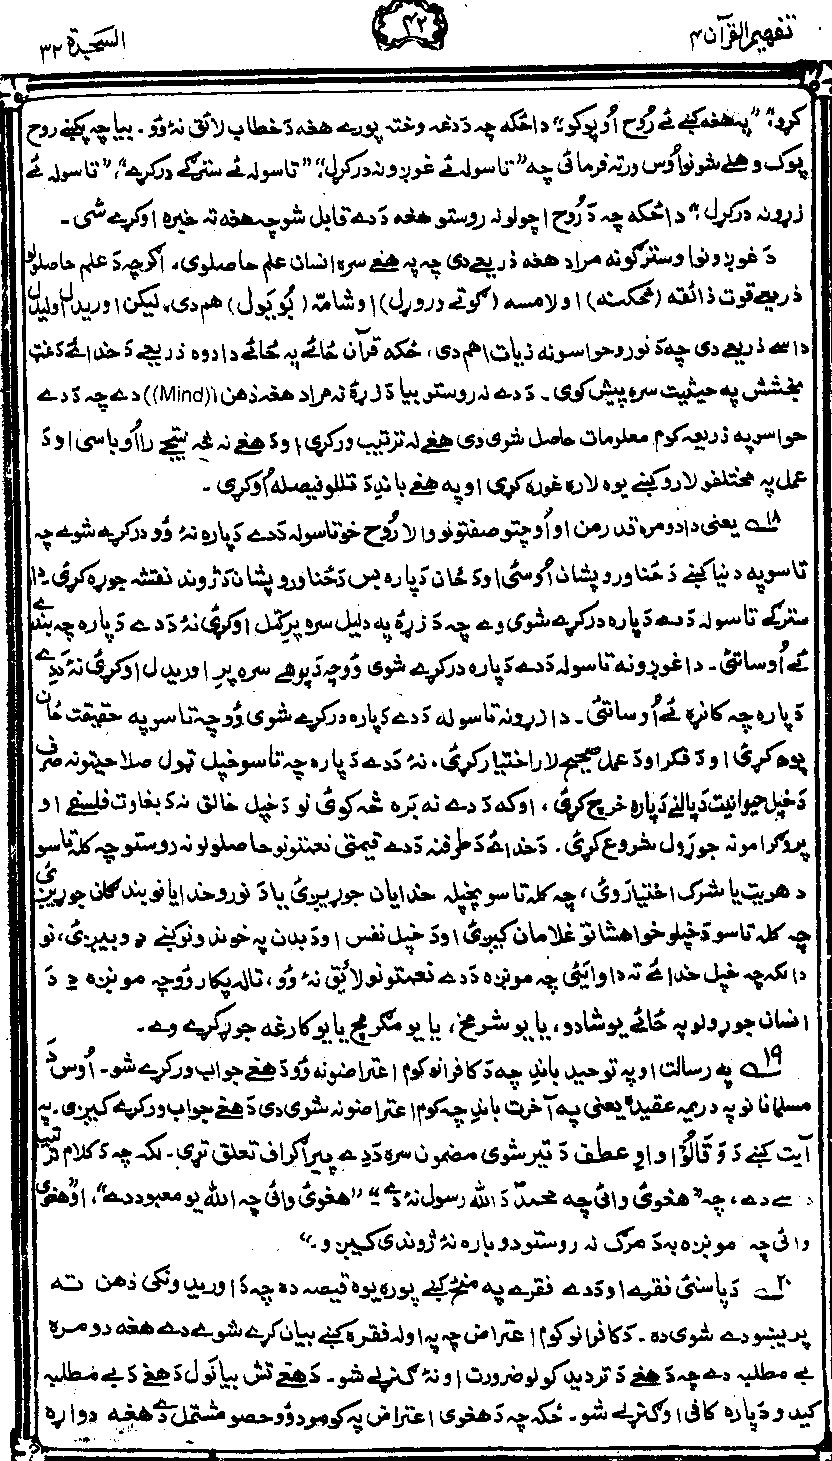 تفهیم القرآن ۴
۴۲
السجدة ۳۲
کړو،“ ”په هغه کښے ئے رُوح اُوپوکو“ دا ځکه چه د دغه وخته پورے هغه د خطاب لائق نۀ وُو۔ بیا چه پکښے روح
پوک وهلے شو نو اُوس ورته فرمائی چه ”تاسوله ئے غوږونه درکړل“ ”تاسوله ئے سترګے درکړے“، ”تاسوله ئے
زړونه درکړل“ دا ځکه چه د رُوح اچولو نه روستو هغه د دے قابل شو چه هغه ته خبره اوکړے شی۔
د غوږونو او سترګو نه مراد هغه ذریعے دی چه په هغے سره انسان علم حاصلوی۔ اګرچه د علم حاصلولو
ذریعے قوت ذائقه (څکنه) او لامسه (ګوتے دروړل) او شامّه (بُویَول) هم دی، لیکن اوریدل اولیدل
داسے ذریعے دی چه د نورو حواسو نه زیات اهم دی، ځکه قرآن ځائے په ځائے دا دوه ذریعے د خدائے د غټ
بخشش په حیثیت سره پیش کوی۔ د دے نه روستو بیا د زړۀ نه مراد هغه ذهن (Mind) دے چه د دے
حواسو په ذریعه کوم معلومات حاصل شوی دی هغے له ترتیب ورکړی او د هغے نه څه نتیجے رااُوباسی او د
عمل په مختلفو لارو کښے یوه لاره غوره کړی او په هغے باندِ د تللو فیصله اُوکړی۔
۱۸ یعنی دا دومره قدرمن او اُوچتو صفتونو والا رُوح خو تاسوله د دے دپاره نۀ وُو درکړے شوے چه
تاسو په دنیا کښے د ځناورو پشان اُوسئ او د ځان دپاره بس د ځناورو پشان د ژوند نقشه جوړه کړئ۔ دا
سترګے تاسوله د دے دپاره درکړے شوی وے چه د زړۀ په دلیل سره پرِ کتل اوکړئ نۀ د دے دپاره چه بندے
ئے اُوساتئ۔ دا غوږونه تاسوله د دے دپاره درکړے شوی وُو چه د پوهے سره پرِ اوریدل اوکړئ نۀ د دے
دپاره چه کاڼۀ ئے اُوساتئ۔ دا زړونه تاسوله د دے دپاره درکړے شوی وُو چه تاسو په حقیقت ځان
پوه کړئ او د فکر او د عمل صحیح لار اختیار کړئ، نۀ د دے دپاره چه تاسو خپل ټول صلاحیتونه صرف
د خپل حیوانیت د پالنے دپاره خرچ کړئ، او که د دے نه بره څه کوئ نو د خپل خالق نه د بغاوت فلسفے او
پروګرامونه جوړول شروع کړئ۔ د خدائے د طرفنه د دے قیمتی نعمتونو حاصلولو نه روستو چه کله تاسو
دهریت یا شرک اختیاروئ، چه کله تاسو بخپله خدایان جوړیږئ یا د نورو خدایانو بندګان جوړیږئ
چه کله تاسو د خپلو خواهشاتو غلامان کیږئ او د خپل نفس او د بدن په خوندونو کښے ډوبیږئ، نو
دا لکه چه خپل خدائے ته دا وایئ چه مونږه د دے نعمتونو لائق نۀ وُو، تاله پکار وُو چه مونږه د
انسان جوړولو په ځائے یو شادو، یا یو شرمخ، یا یو مګرمچ یا یو کارغه جوړ کړے وے۔
۱۹ په رسالت او په توحید باندِ چه د کافرانو کوم اعتراضونه وُو د هغے جواب ورکړے شو۔ اُوس د
مسلمانانو په دریمه عقیده یعنی په آخرت باندِ چه کوم اعتراضونه شوی دی د هغے جواب ورکړے کیږی۔ په
آیت کښے د وَقَالُوْا واو عطف د تیر شوی مضمون سره د دے پیراګراف تعلق تړی۔ لکه چه د کلام ترتیب
داسے دے، چه ”هغوئ وائی چه محمدؐ د الله رسول نۀ دے“ ”هغوئ وائی چه الله یو معبود دے“، او ”هغوئ
وائی چه مونږه به د مرګ نه روستو دوباره نۀ ژوندی کیږو۔“
۲۰ د پاسنئ فقرے او د دے فقرے په منځ کښے پوره یوه قیصه ده چه د اوریدونکی ذهن ته
پریښودے شوی ده۔ د کافرانو کوم اعتراض چه په اوله فقره کښے بیان کړے شوے دے هغه دومره
بے مطلبه دے چه د هغے د تردید کولو ضرورت اونۀ ګنړلے شو۔ د هغے تش بیانَول د هغے د بے مطلبه
کیدو دپاره کافی اوګنړلے شو۔ ځکه چه د هغوی اعتراض په کومو دوو حصو مشتمل دے هغه دواړه